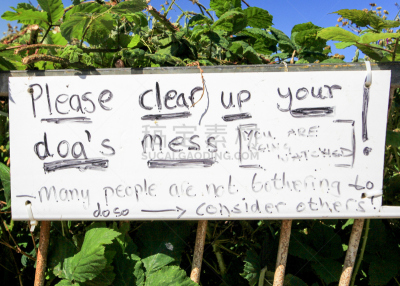 Please clear up your
dog's mess !
[YOU ARE BEING WATCHED]
~ Many people are not bothering to
do so → consider others!